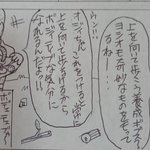 上を向いて歩こう養成ギプス
ヨシオモ奇妙なものをもって
るわ
ウン!!
これをつけると常に
上を向いて歩けるから
ポジティブな気分に
なれるんだよ!!